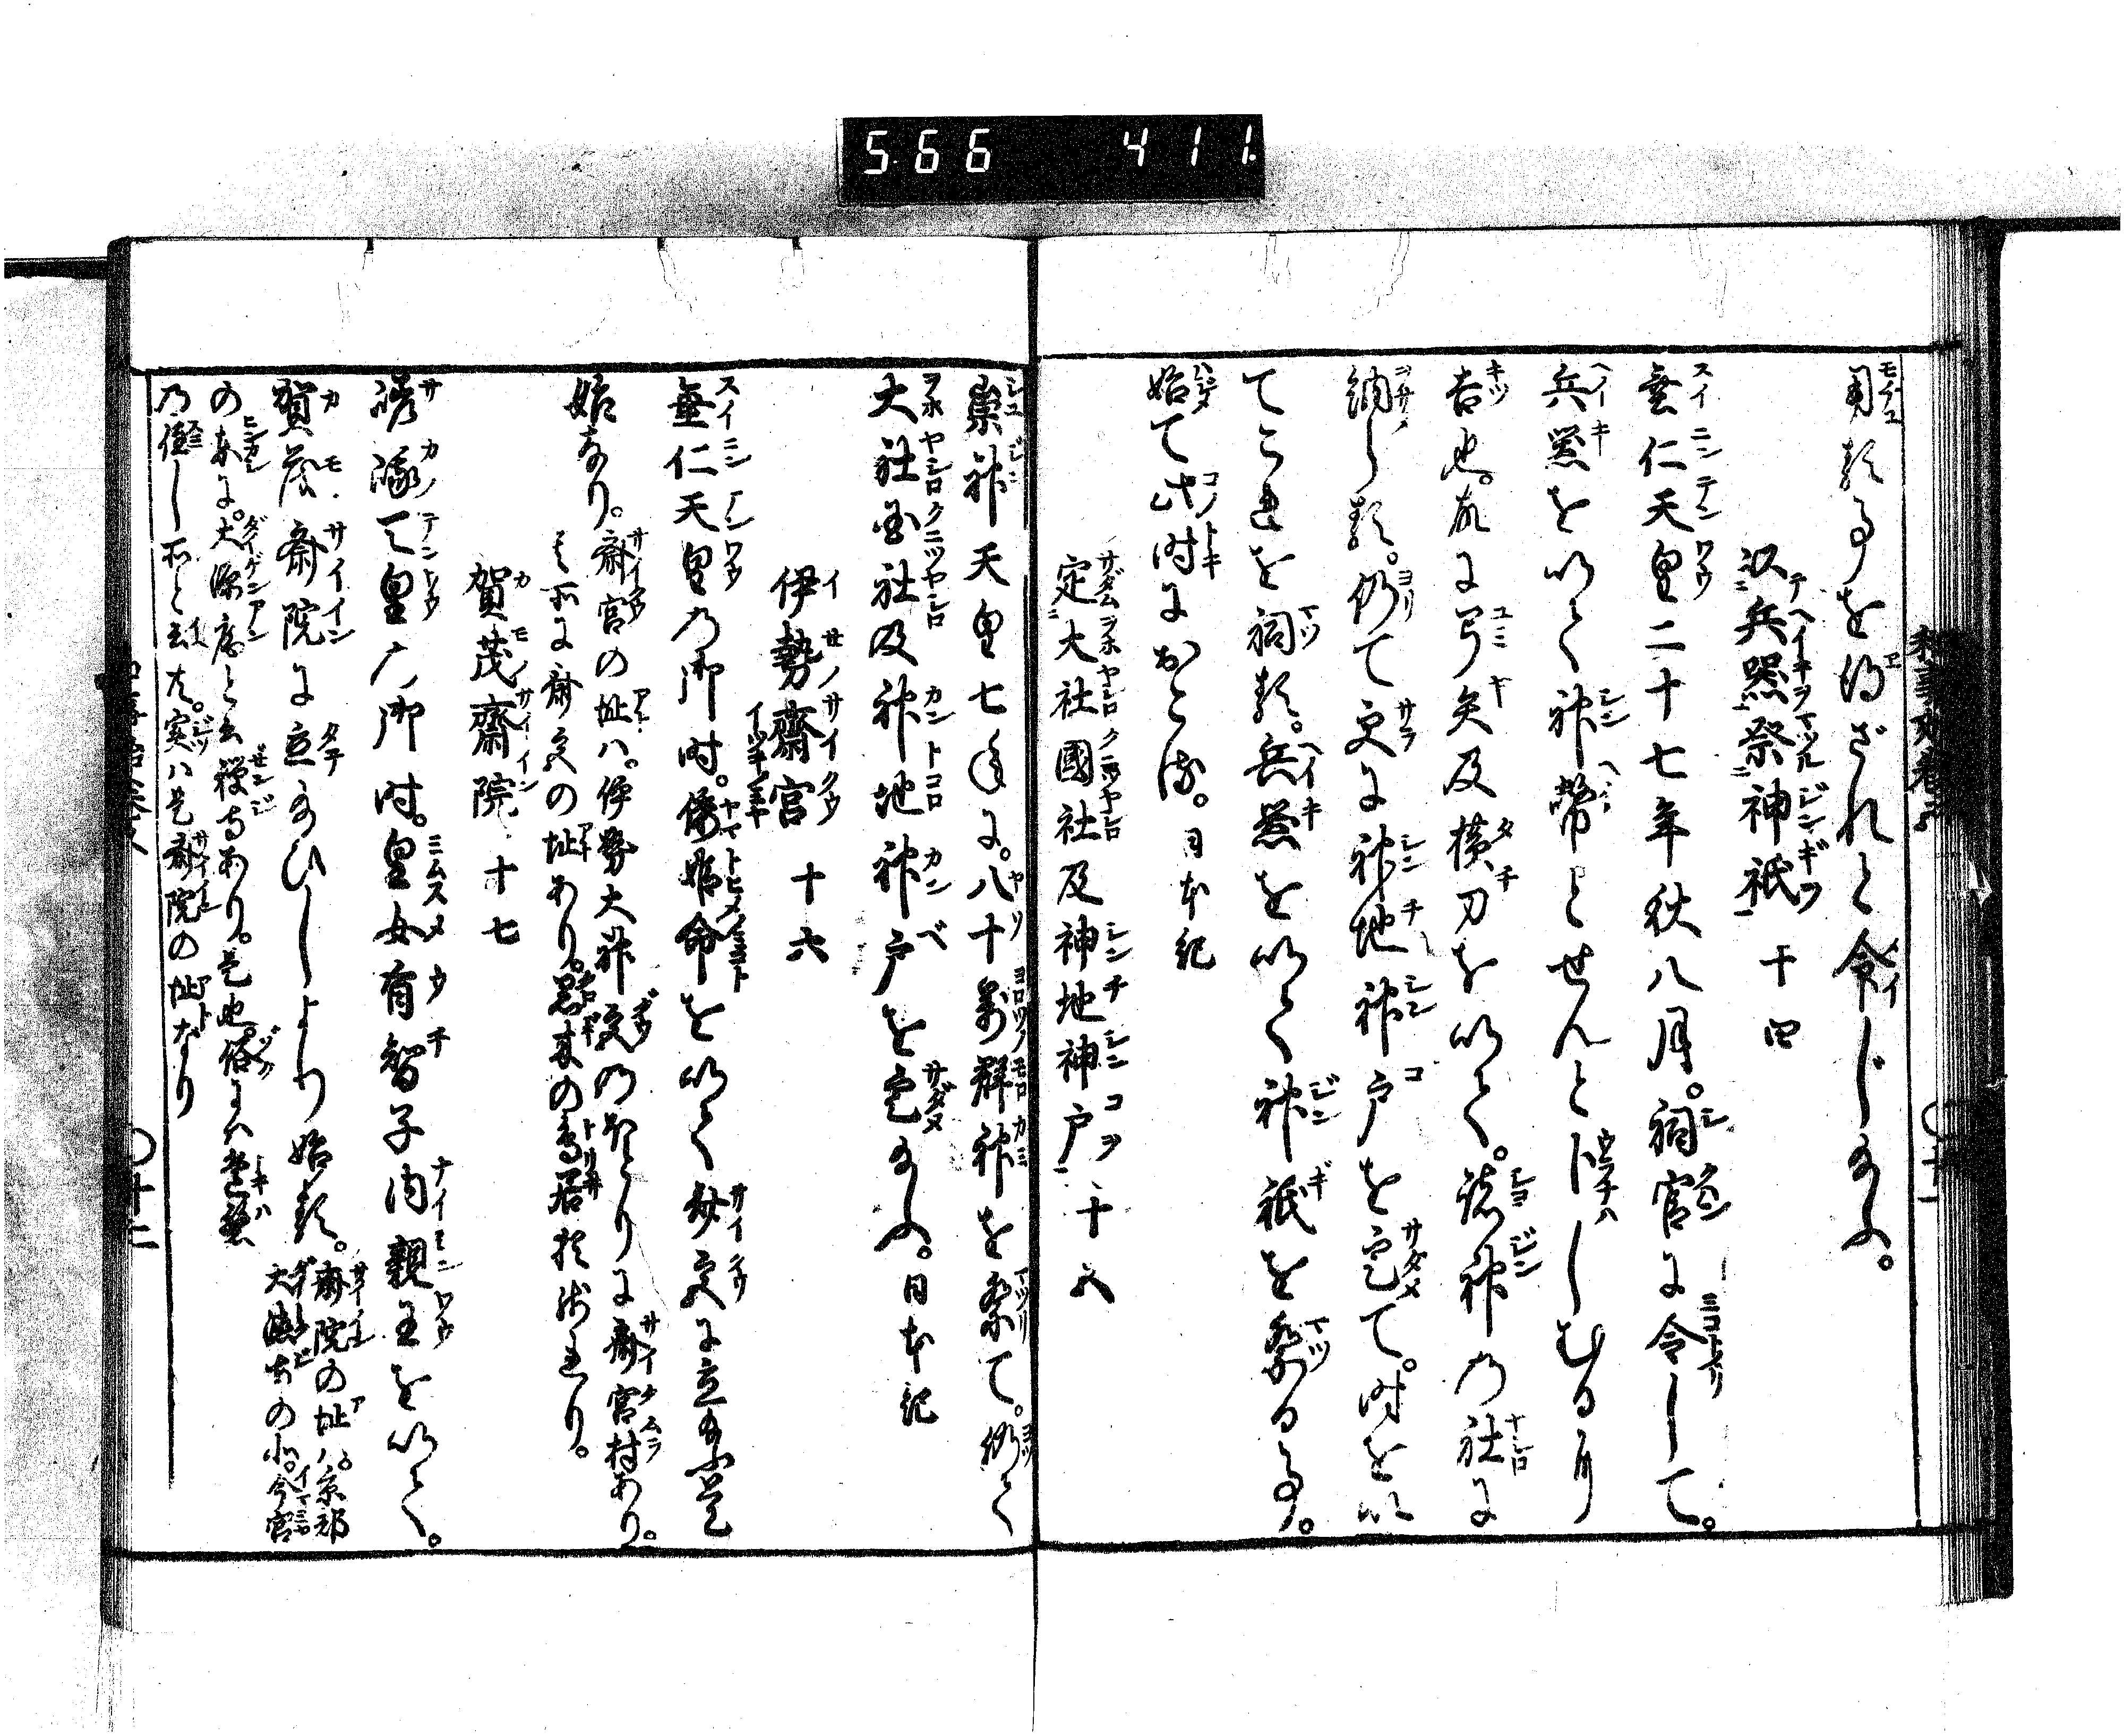 566 411
用ゆる事を得ざれと令じ給ふ。
以兵器祭神祇 十四
垂仁天皇二十七年秋八月。祠官に令して。
兵器を以て神幣とせんと卜しむるに
吉也。故に弓矢及横刀を以て。諸神の社に
納しむ。仍て更に神地神戸を定て。時を以
てこれを祠る。兵器を以て神祇を祭る事。
始て此時におこる。日本記
定大社國社及神地神戸 十五
崇神天皇七年に。八十萬群神を祭て。仍て
大社国社及神地神戸を定給ふ。日本記
伊勢齋宮 十六
垂仁天皇の御時。倭姫命を以て斎宮に立給ふ是
始なり。斎宮の址ハ。伊勢大神宮のほとりに斎宮村あり。
其所に斎宮の址あり。黒木の鳥居抔残れり。
賀茂齋院 十七
嵯峨天皇ノ御時。皇女有智子内親王を以て。
賀茂斎院に立給ひしより始る。斎院の址ハ。京都
大徳寺の北。今宮
の東に。大源庵と云禅寺あり。是也。俗にハ常盤
の僻し所と云共。実ハ是斎院の址なり
〇十二